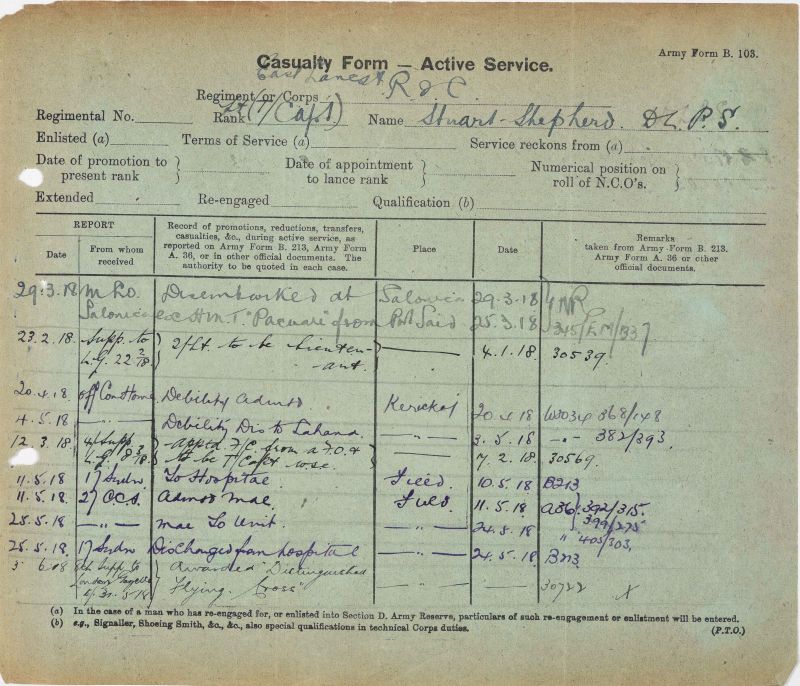 Army Form B. 103.
Casualty Form — Active Service.
East Lancs
Regiment or Corps
Regimental No.
Rank (T/Capt)
Name Stuart-Shepherd. D.L.P.S.
Enlisted (a)
Terms of Service (a)
Service reckons from (a)
Date of promotion to present rank
Date of appointment to lance rank
Numerical position on roll of N.C.O's.
Extended
Re-engaged
Qualification (b)
REPORT
Date
From whom received
Record of promotions, reductions, transfers, casualties, &c., during active service, as reported on Army Form B. 213, Army Form A. 36, or in other official documents. The authority to be quoted in each case.
Place
Date
Remarks taken from Army Form B. 213. Army Form A. 36 or other official documents.
29.3.18 M.L.O. Disembarked at Salonica 29.3.18
Salonica ex H.M.T. "Pacuare" from Port Said 25.3.18
23.2.18 Supp. to 2/Lt. to be Lieuten- 4.1.18 30539
L.G. 22/2/18 ant.
20.4.18 Off Con Home Debility Admtd 20.4.18 W3034 368/148
4.5.18 —"— Debility Dis to —"— 3.5.18 —"— 382/393
12.3.18 Supp appt'd F/C. from a F.O. &
L.G. to be T/Capt w.s.e. —"— 7.2.18 30569.
11.5.18 17 Sqdn To Hospital Field 10.5.18 B213
11.5.18 27 C.C.S. Admtd Field 11.5.18 A36 392/315.
399/275
25.5.18 —"— To Unit. —"— 24.5.18 " 405/303.
25.5.18 17 Sqdn Discharged from hospital —"— 24.5.18 B213
Supp to Awarded "Distinguished
London Gazette Flying Cross" —"— 30722 X
(a) In the case of a man who has re-engaged for, or enlisted into Section D. Army Reserve, particulars of such re-engagement or enlistment will be entered.
(b) e.g., Signaller, Shoeing Smith, &c., &c., also special qualifications in technical Corps duties.
(P.T.O.)